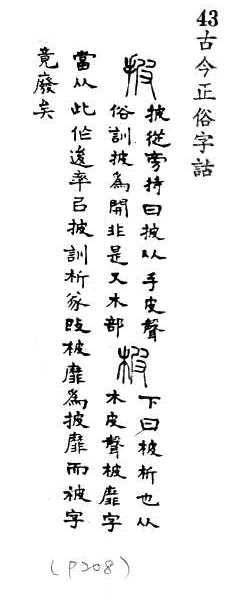 43 古今正俗字詁
披
披從旁持曰披从手皮聲
俗訓披為開非是又木部
柀
下曰柀析也从
木皮聲柀靡字
當从此作後率㠯披訓析㒸改柀靡為披靡而柀字
竟廢矣
(P208)